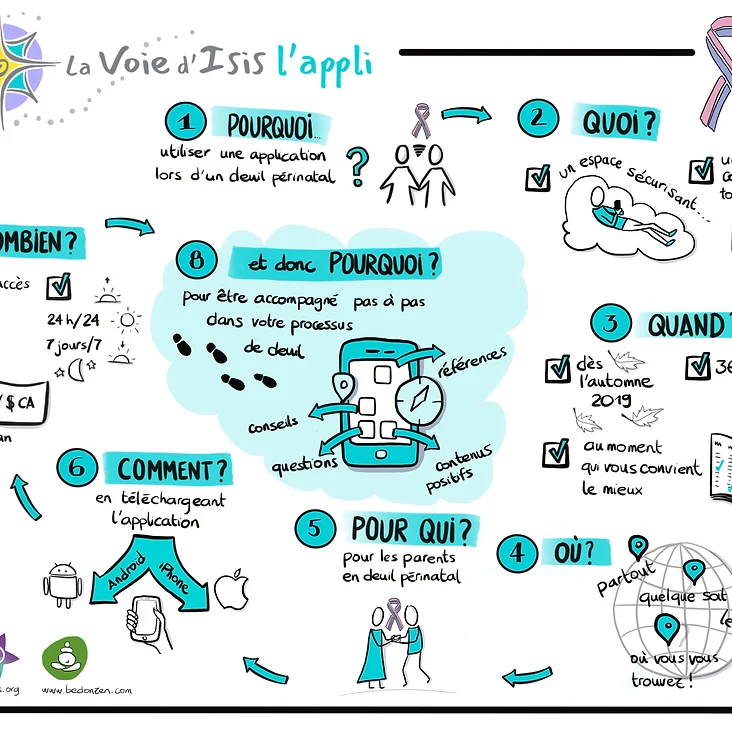 La Voie d'Isis l'appli
1 POURQUOI...
utiliser une application
lors d'un deuil périnatal
?
2 QUOI?
un espace sécurisant...
3 QUAND?
dès
l'automne
2019
36
au moment
qui vous convient
le mieux
4 OÙ?
partout
quelque soit
le
où vous vous
trouvez!
5 POUR QUI?
pour les parents
en deuil périnatal
6 COMMENT?
en téléchargeant
l'application
Android
iPhone
OMBIEN?
accès
24h/24
7 jours/7
/ $ CA
an
8 et donc POURQUOI?
pour être accompagné pas à pas
dans votre processus
de deuil
références
conseils
questions
contenus
positifs
s.org
www.bedonzen.com